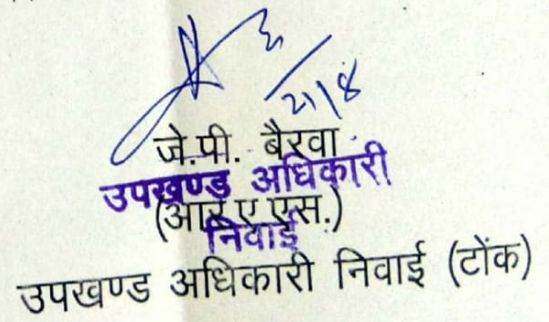 21/8
जे.पी. बैरवा
उपखण्ड अधिकारी
(आर.ए.एस.)
निवाई
उपखण्ड अधिकारी निवाई (टोंक)